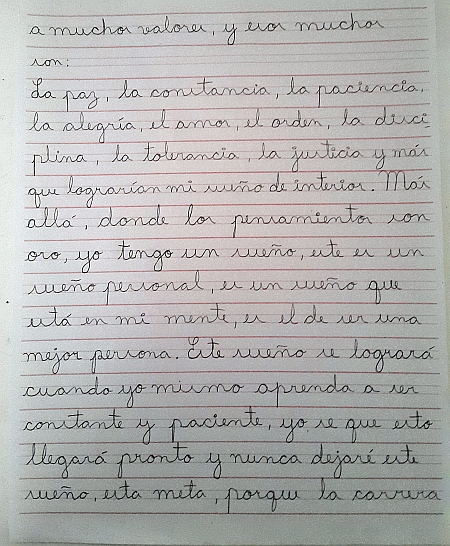 a muchos valores, y esos muchos
son:
La paz, la constancia, la paciencia,
la alegría, el amor, el orden, la disci-
plina, la tolerancia, la justicia y más
que lograrían mi sueño de interior. Más
allá, donde los pensamientos son
oro, yo tengo un sueño, este es un
sueño personal, es un sueño que
está en mi mente, es el de ser una
mejor persona. Este sueño se logrará
cuando yo mismo aprenda a ser
constante y paciente, yo se que esto
llegará pronto y nunca dejaré este
sueño, esta meta, porque la carrera